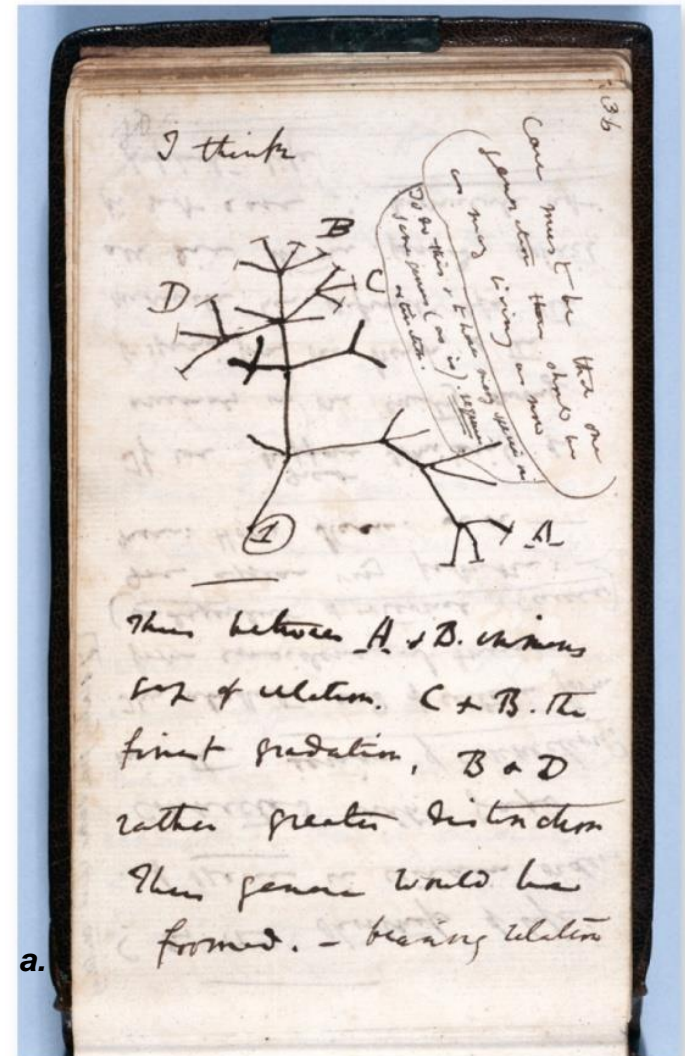 I think
B
C
D
A
1
36
Case must be that one
generation then should be
as many living as now
To do this & to have many species in
same genus (as is). requires
extinction.
Thus between A & B. immens
gap of relation. C & B. The
finest gradation, B & D
rather greater distinction
Thus genera would be
formed. – bearing relation
a.